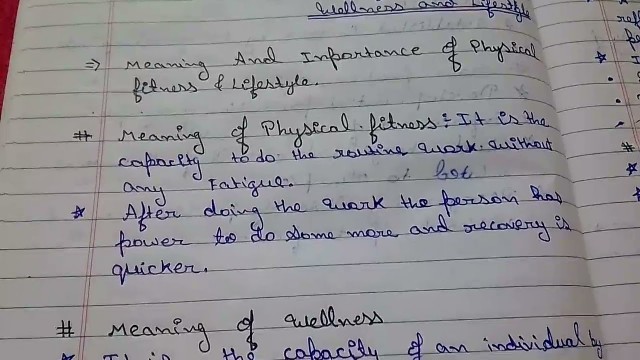 Wellness and Lifestyle
⇒ Meaning And Importance of Physical
fitness & Lifestyle.
# Meaning of Physical fitness : It is the
capacity to do the routine work without
any Fatigue.
* After doing the work the person has
power to do some more and recovery is
quicker.
# Meaning of Wellness
* It is the capacity of an individual by